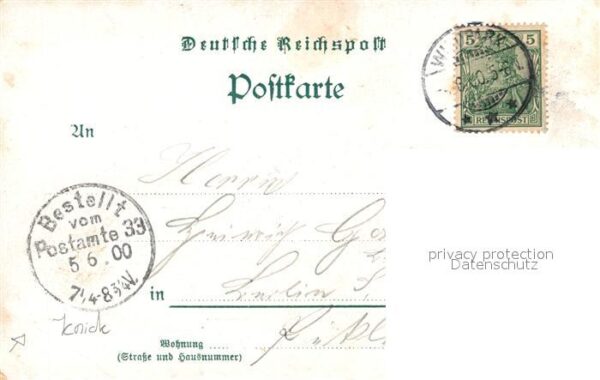 Deutsche Reichspost
Postkarte
5 5
REICHSPOST
An
Herrn
Heinrich
Bestellt
vom
Postamte 33
5 6 . 00
7¼-8¾V.
privacy protection
Datenschutz
in Berlin S.
Knick
Wohnung
(Straße und Hausnummer)